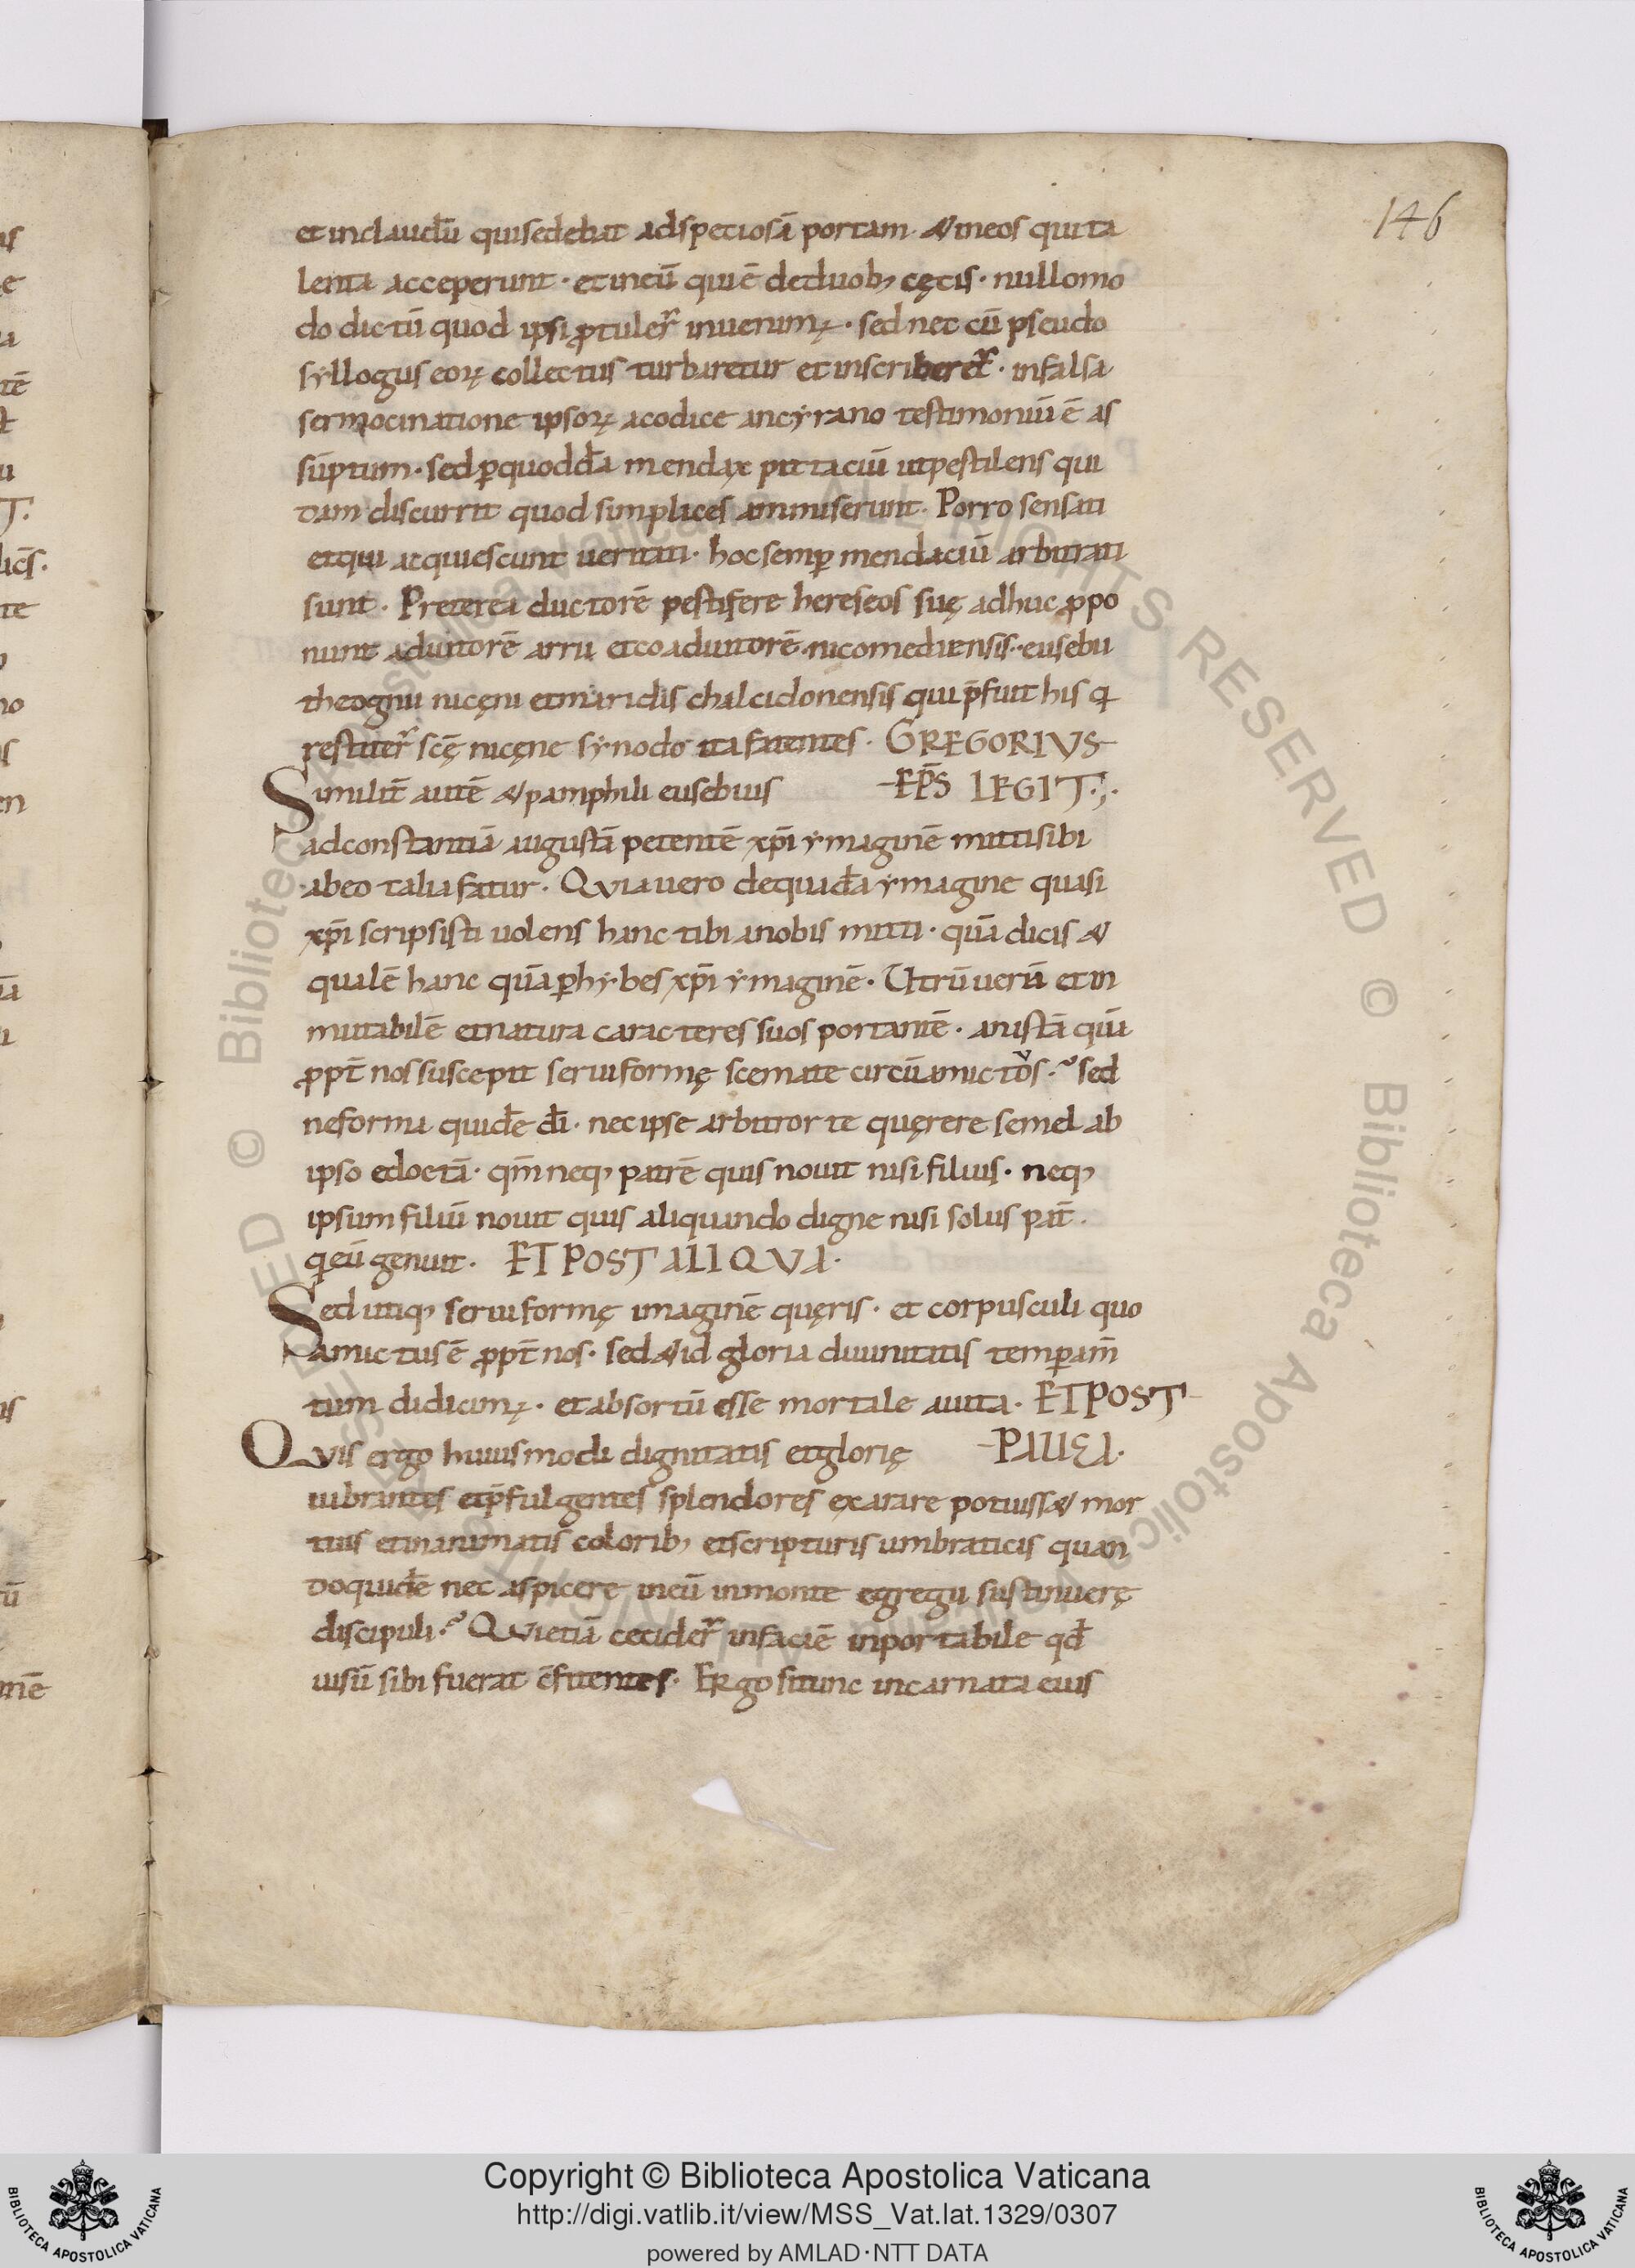 146
et inclaudū quisedebat adspetiosā portam. & ineos quita
lenta acceperunt · et ineū quiē deduobꝫ cęcis · nullomo
do dictū quod ipsi ꝓtuler̄ inuenimꝰ · sed nec cū pseudo
syllogus eoꝝ collectus turbaretur et inscriberet̄ · infalsa
sermocinatione ipsoꝝ acodice ancyrano testimoniū ē as
sūptum · sed ꝑquodda mendax pittaciū utpestilens qui
dam discurrit quod simplices ammiserunt. Porro sensati
etqui acquiescunt ueritati · hoc semꝑ mendaciū arbitrati
sunt. Preterea ductorē pestifere hereseos suę adhuc ꝓpo
nunt adiutorē arrii etcoadiutorē nicomediensis · eusebii
theognii nicęni etmaridis chalcidonensis qui p̄fuit his q̇
restiter̄ scę̄ nicęne synodo ita fatentes · GREGORIVS
Similit̄ autē & pamphili eusebius -EP̄S LEGIT·;·
adconstantiā augustā petentē xp̄i ymaginē mittisibi
abeo talia fatur. Quia uero dequadā ymagine quasi
xp̄i scripsisti uolens hanc tibi anobis mitti · quā dicis &
qualē hanc quā ꝑhybes xp̄i ymaginē · Utrū uerū et in
mutabilē etnatura caracteres suos portantē · anistā quā
ꝓpt̄ nos suscepit serui formę scemate circūamictvs ·? sed
neforma quidē dī · nec ipse arbitror te quęrere semel ab
ipso edoctā · qm̄ neqꝫ patrē quis nouit nisi filius · neqꝫ
ipsum filiū nouit quis aliquando digne nisi solus pat̄ ·
q̇ eū genuit · ET POST ALIQVA·
Sed utiqꝫ serui formę imaginē quęris · et corpusculi quo
amictus ē ꝓpt̄ nos · sed & id gloria diuinitatis temꝑam̄
tum didicimꝰ · et absortū esse mortale auita · ET POST
Quis ergo huiusmodi dignitatis etglorię -PAUCA·
uibrantes etp̄fulgentes splendores exarare potuiss& mor
tuis etinanimatis coloribꝫ etscripturis umbraticis quan
doquidē nec aspicere ineū inmonte egregii sustinuerę
discipuli ·? Qui etiā cecider̄ infaciē inportabile qd̄
uisū sibi fuerat c̄fitentes · Ergo situnc incarnata eius
Copyright © Biblioteca Apostolica Vaticana
http://digi.vatlib.it/view/MSS_Vat.lat.1329/0307
powered by AMLAD·NTT DATA